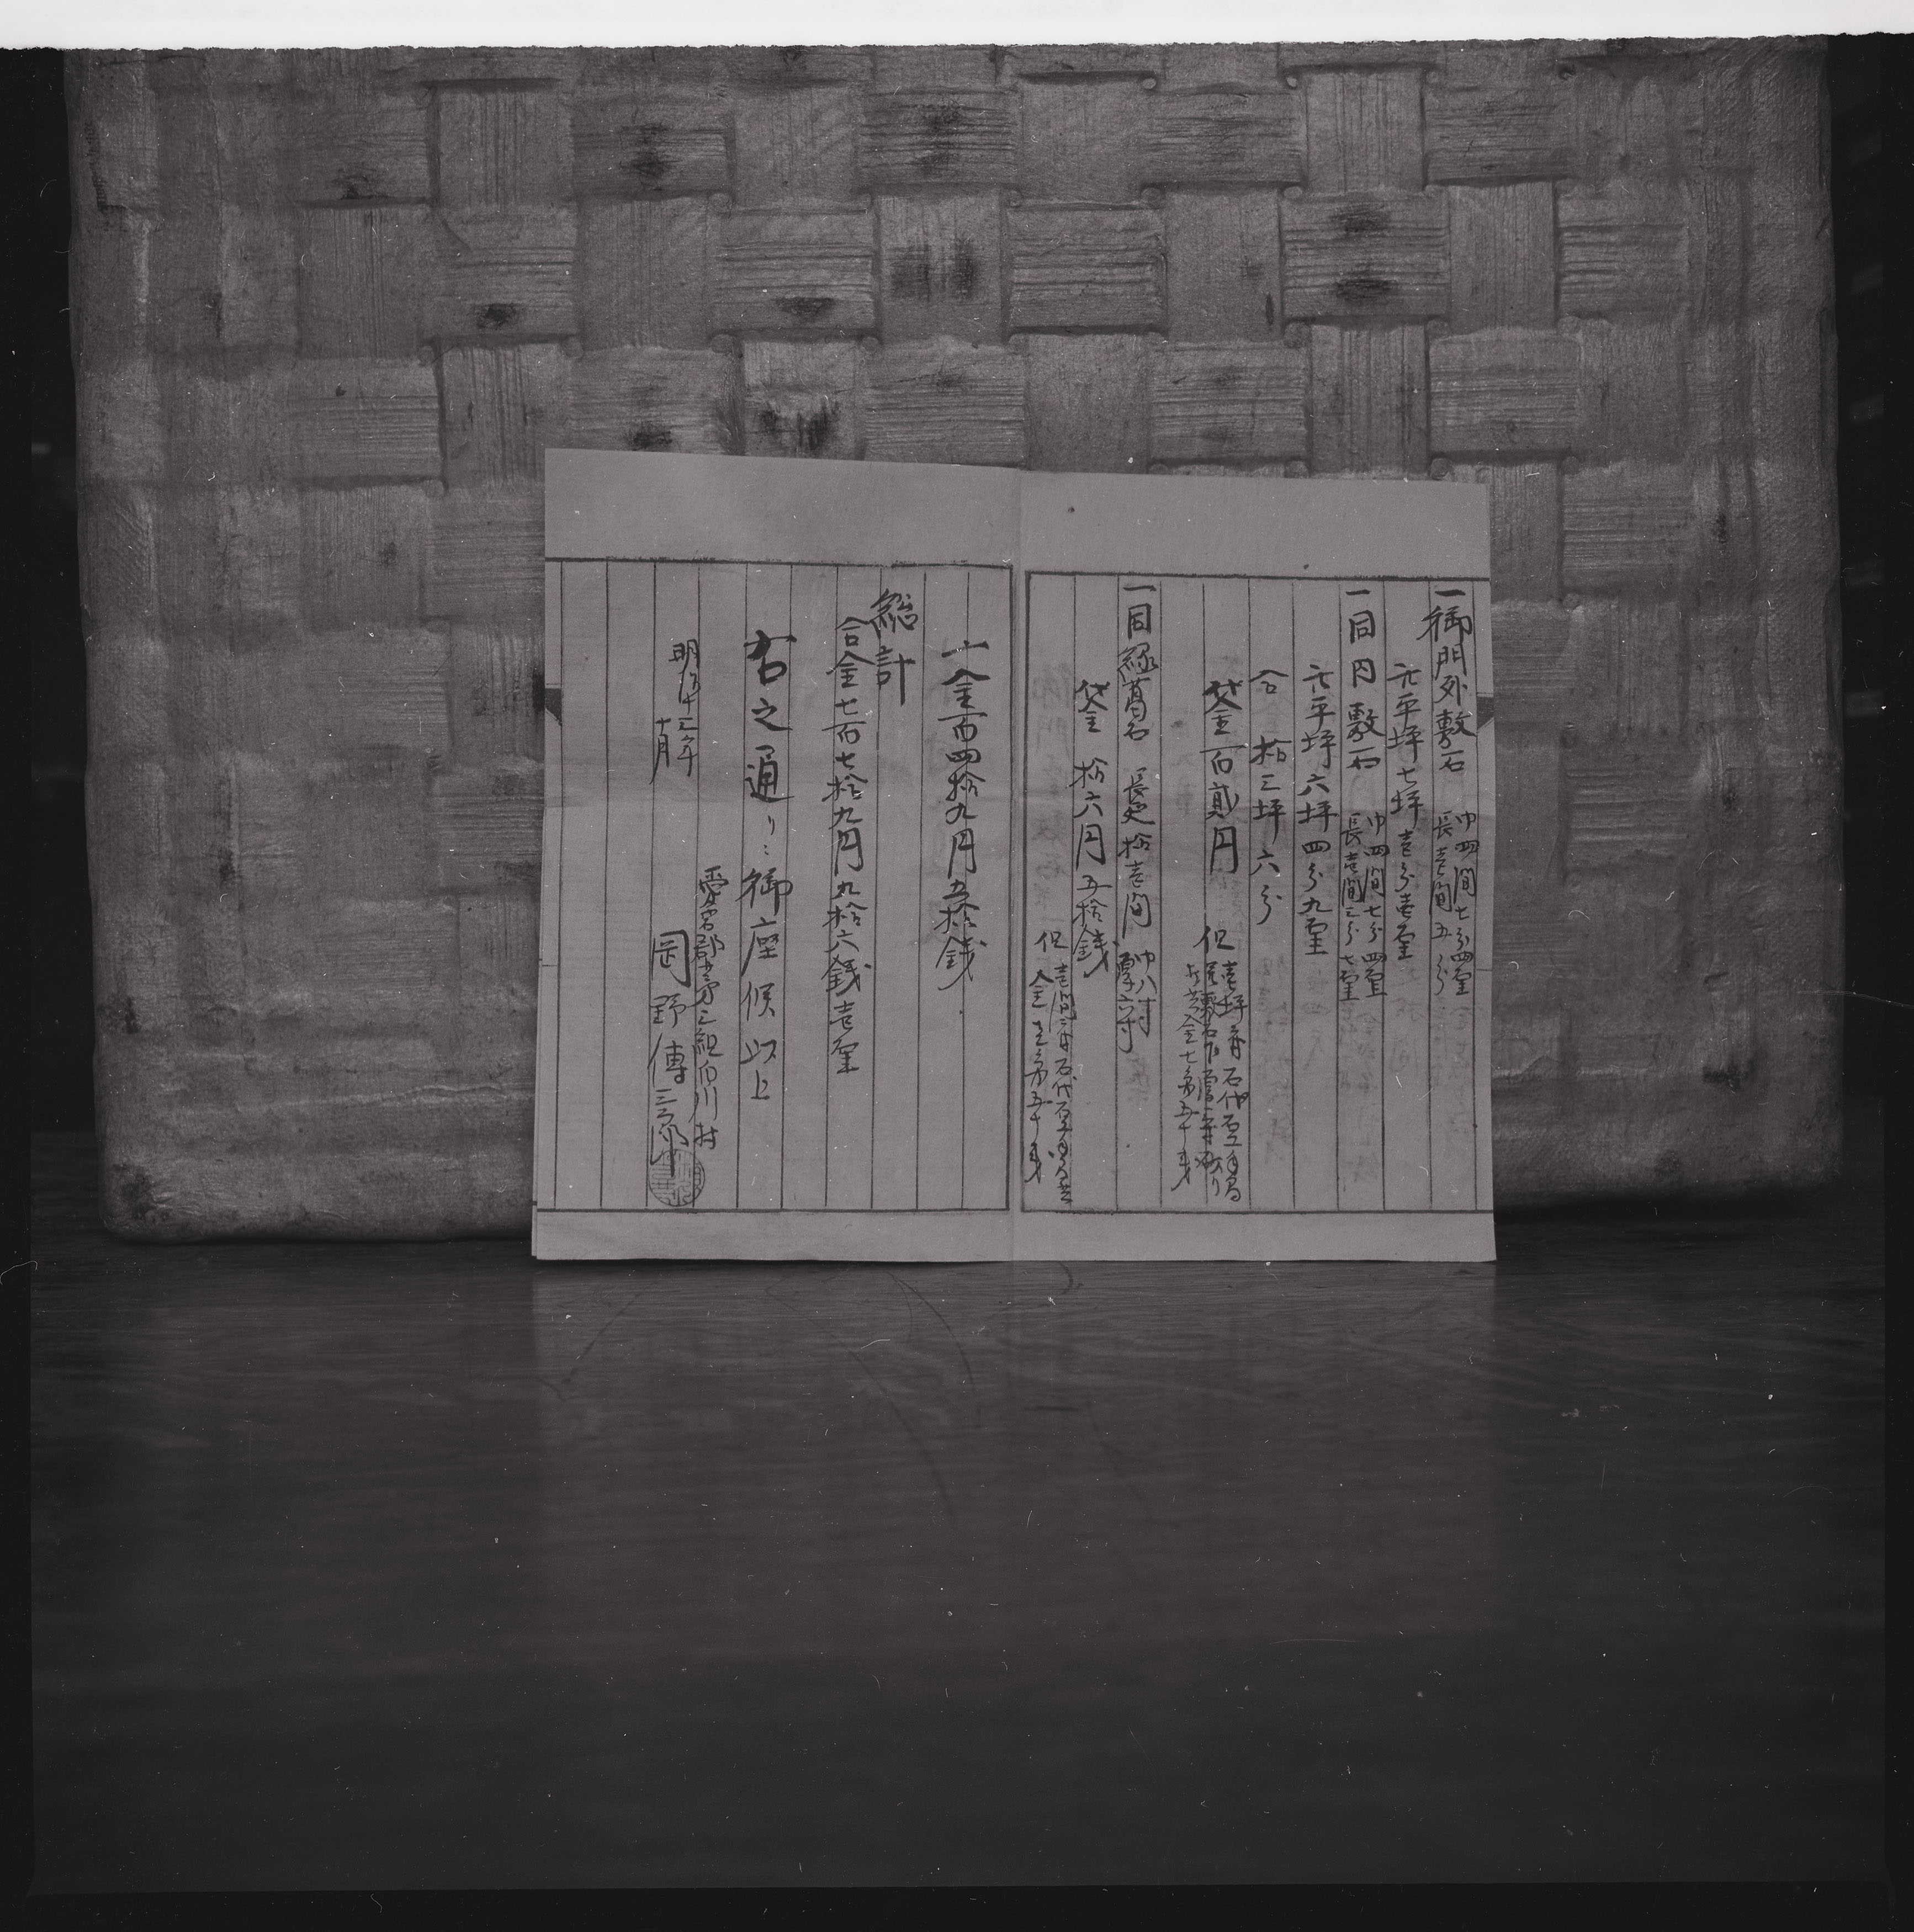 一御門外敷石
巾四間七分四厘
長壱間五分
此平坪七坪壱分壱厘
一同内敷石
巾四間七分四厘
長壱間三分七厘
此平坪六坪四分九厘
合拾三坪六分
代金百貳円
但
壱坪ニ付石代
金七円五十銭
一同縁葛石 長延拾壱間
巾八寸
厚六寸
代金 拾六円五拾銭
但
壱間ニ付石代
金壱円五十銭
〆金百四拾九円五拾銭
総計
合金七百七拾九円九拾六銭壱厘
右之通リニ御座候以上
明治十三年
十月
愛宕郡第三組白川村
岡野傳三郎